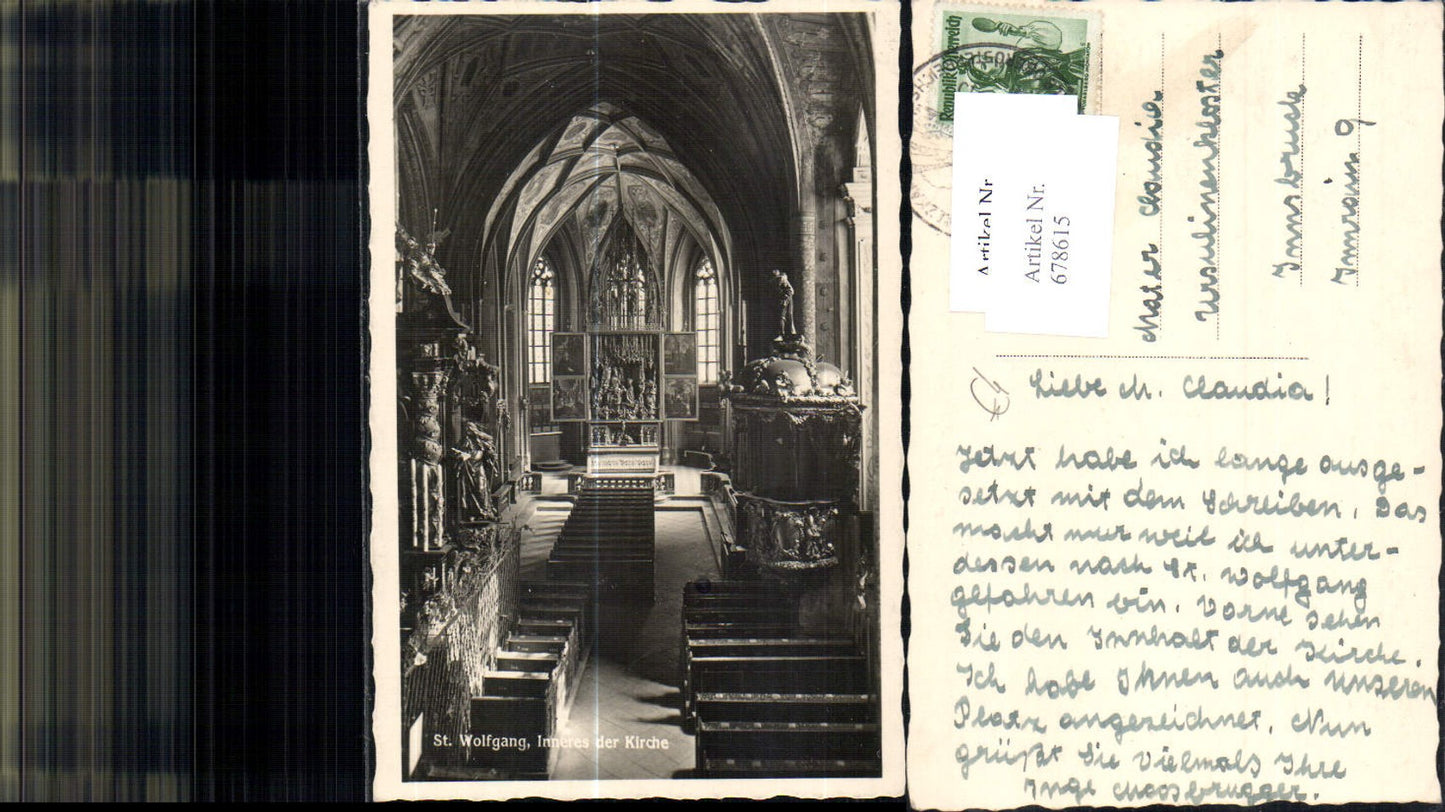 St. Wolfgang, Inneres der Kirche
Republik Österreich
Artikel Nr
Artikel Nr.
678615
Mater Claudia
Ursulinenkloster
Innsbruck
Innrain 9
Liebe M. Claudia!
Jetzt habe ich lange ausge-
setzt mit dem Schreiben. Das
macht nur weil ich unter-
dessen nach St. Wolfgang
gefahren bin. Vorne sehen
Sie den Innhalt der Kirche.
Ich habe Ihnen auch unseren
Platz angezeichnet. Nun
grüßt Sie Vielmals Ihre
Inge Moosbrugger.